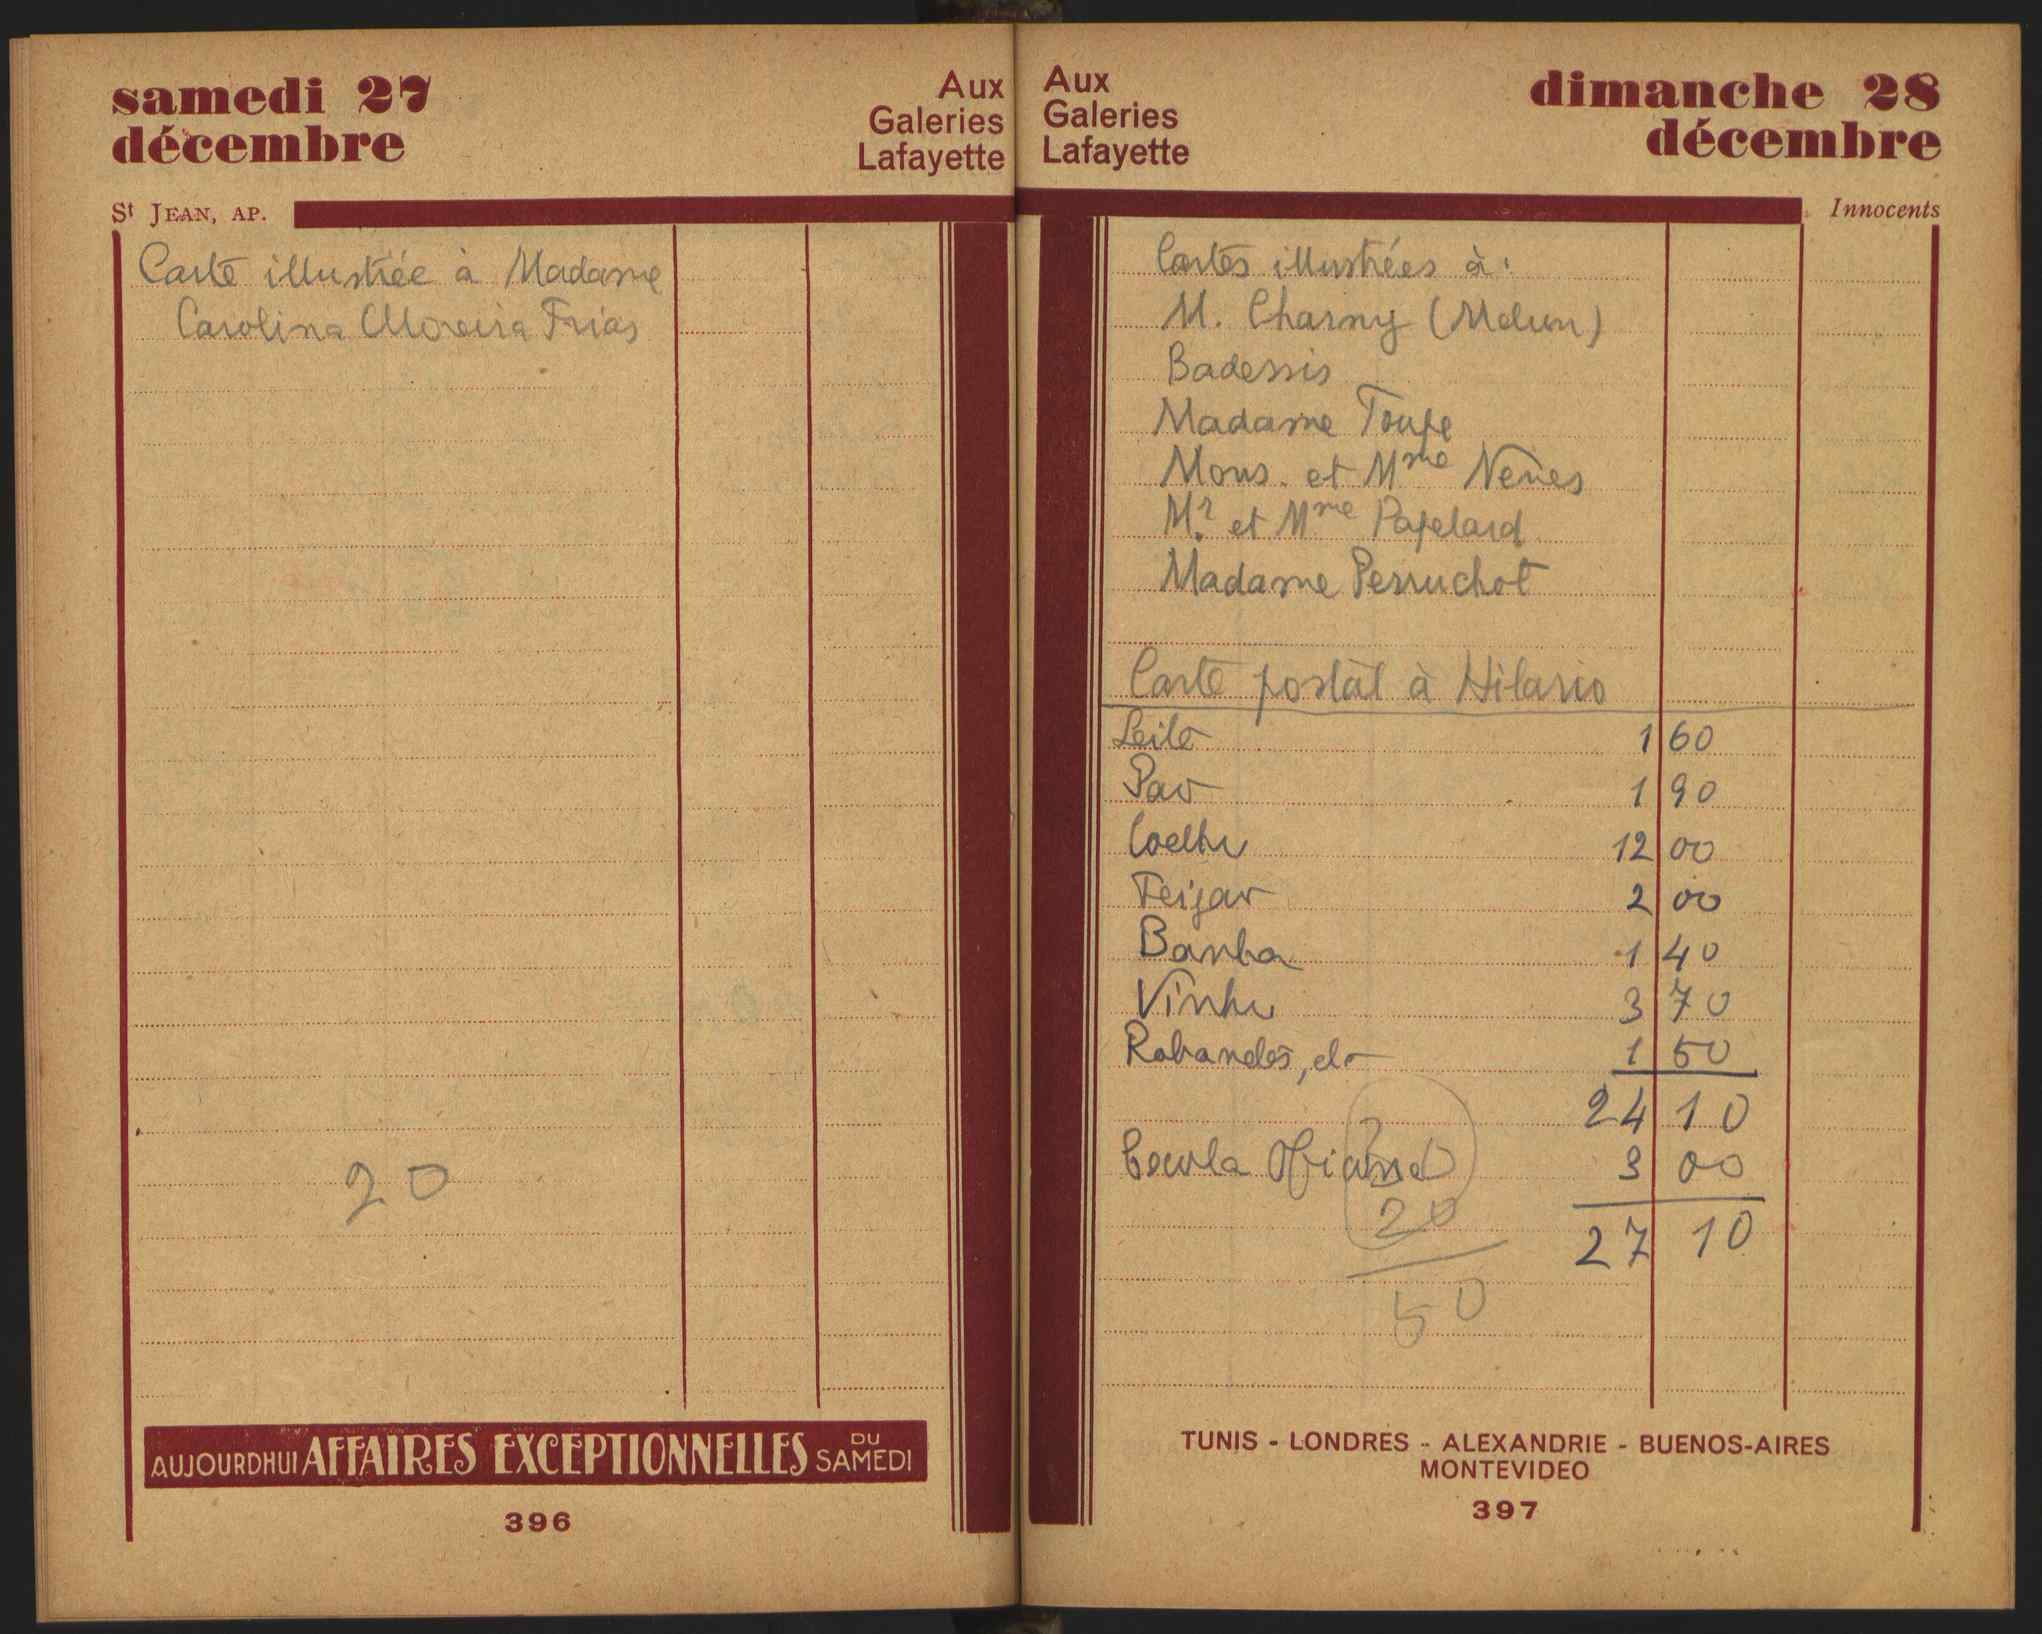 samedi 27
décembre
Aux
Galeries
Lafayette
St JEAN, AP.
Carte illustrée à Madame
Carolina Moreira Frias
20
AUJOURDHUI AFFAIRES EXCEPTIONNELLES DU SAMEDI
396
Aux
Galeries
Lafayette
dimanche 28
décembre
Innocents
Cartes illustrées à:
M. Charny (Melun)
Badessis
Madame Toupe
Mons. et Mme Nenes
Mr. et Mme Papelard
Madame Perruchot
Carte postàl à Hilario
Leite 1 60
Pao 1 90
Coelho 12 00
Feijao 2 00
Banha 1 40
Vinho 3 70
Rabanetes, etc 1 50
24 10
3 00
20
27 10
50
TUNIS - LONDRES - ALEXANDRIE - BUENOS-AIRES
MONTEVIDEO
397